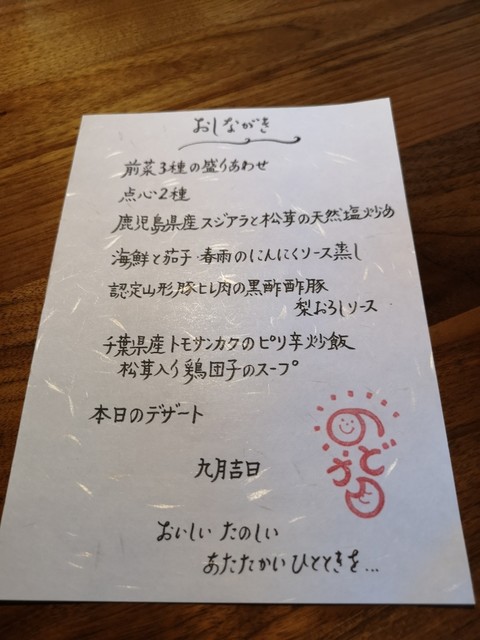 おしながき
前菜3種の盛りあわせ
点心2種
鹿児島県産スジアラと松茸の天然塩炒め
海鮮と茄子・春雨のにんにくソース蒸し
認定山形豚ヒレ肉の黒酢酢豚
梨おろしソース
千葉県産トモサンカクのピリ辛炒飯
松茸入り鶏団子のスープ
本日のデザート
九月吉日
のどか
おいしい たのしい
あたたかいひとときを…